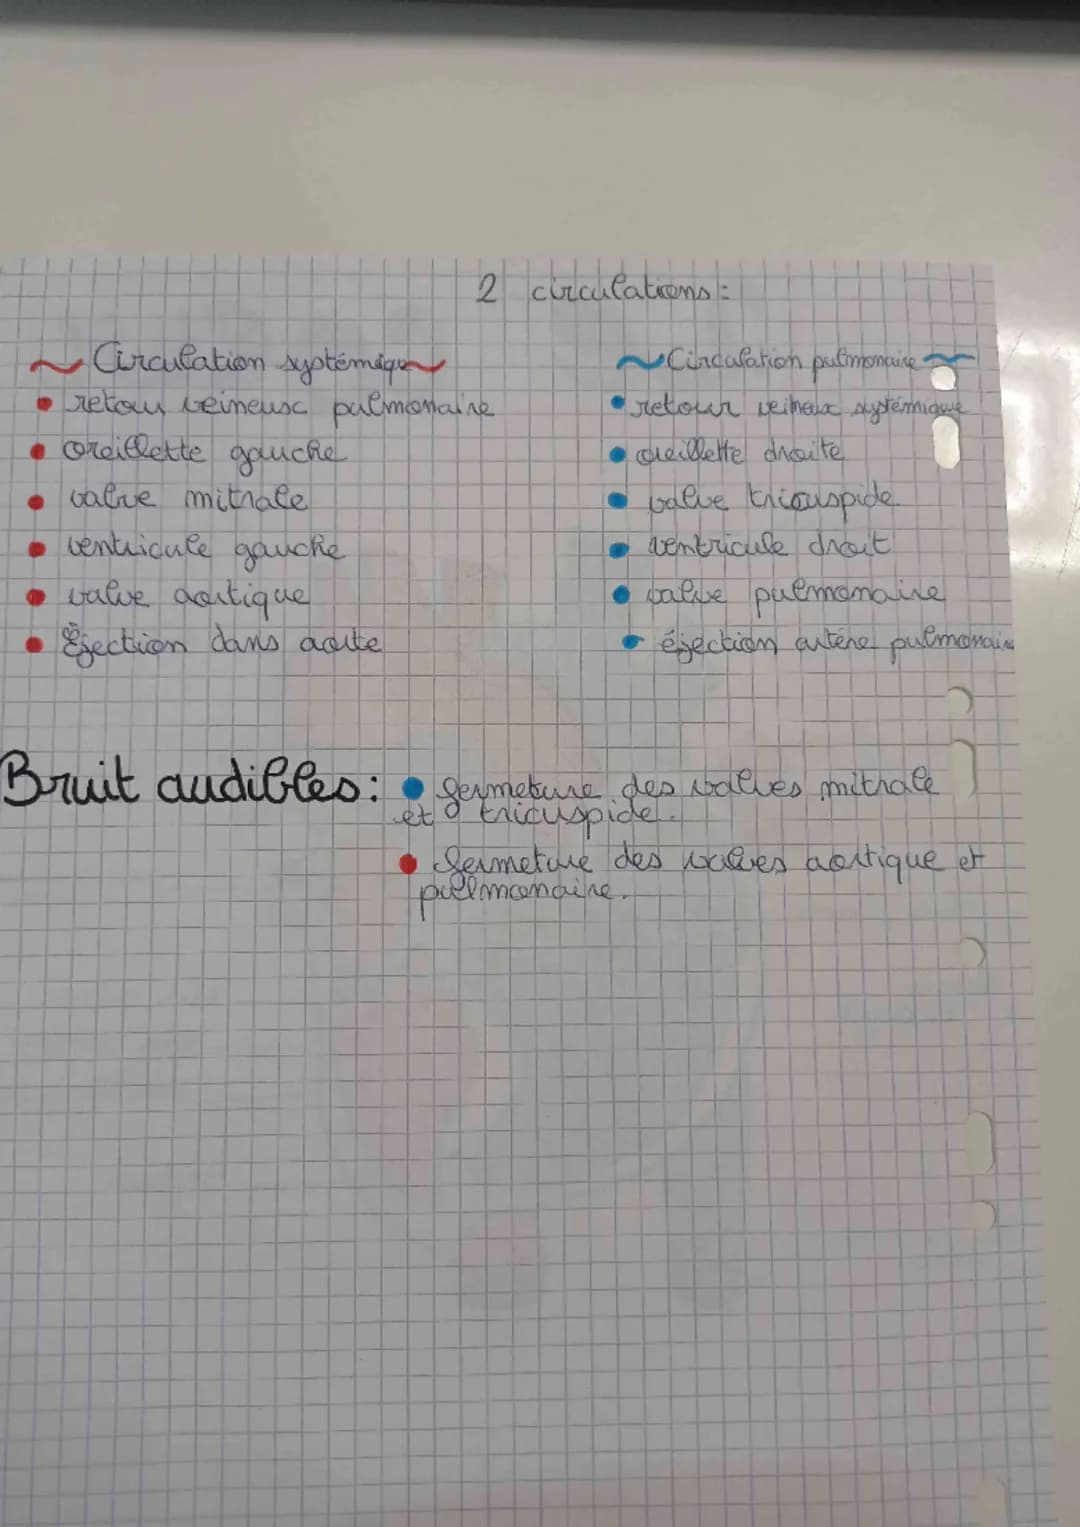 2 circulations :
~ Circulation systémique ~
~ Circulation pulmonaire ~
• retour veineux pulmonaire
• retour veineux systémique
• oreillette gauche
• oreillette droite
• valve mitrale
• valve tricuspide
• ventricule gauche
• ventricule droit
• valve aortique
• valve pulmonaire
• Éjection dans aorte
• éjection artère pulmonaire
Bruit audibles : • fermeture des valves mitrale
et tricuspide.
• fermeture des valves aortique et
pulmonaire.